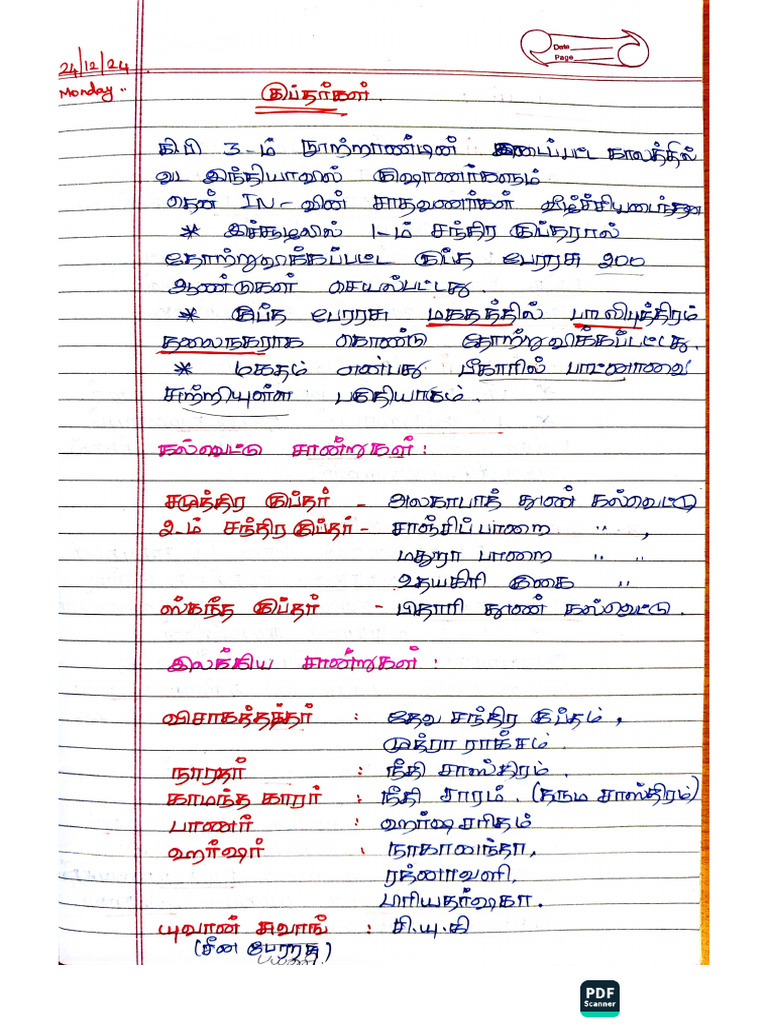 Date
Page
24/12/24
Monday..
குப்தர்கள்.
கி.பி 3-ம் நூற்றாண்டின் இடைப்பட்ட காலத்தில்
வட இந்தியாவில் குஷாணர்களும்
தென் IN-வின் சாதவணர்கள் வீழ்ச்சியடைந்தன
* இச்சூழலில் 1-ம் சந்திர குப்தரால்
தோற்றுவிக்கப்பட்ட குப்த பேரரசு 200
ஆண்டுகள் செயல்பட்டது.
* குப்த பேரரசு மகதத்தில் பாலிபுத்திரம்
தலைநகராக கொண்டு தோற்றுவிக்கப்பட்டது.
* மகதம் என்பது பீகாரில் பாட்னாவை
சுற்றியுள்ள பகுதியாகம்.
கல்வெட்டு சான்றுகள் :
சமுத்திர குப்தர் - அலகாபாத் தூண் கல்வெட்டு
2-ம் சந்திர குப்தர் - சாஞ்சிப் பாறை " ,
மதுரா பாறை " "
உதயகிரி குகை "
ஸ்கந்த குப்தர் - பிதாரி தூண் கல்வெட்டு.
இலக்கிய சான்றுகள் :
விசாகத்தத்தர் : தேவி சந்திர குப்தம்,
முத்ரா ராக்சம்.
நாரதர் : நீதி சாஸ்திரம்.
காமந்த காரர் : நீதி சாரம். (தரும சாஸ்திரம்)
பாணர் : ஹர்ஷ சரிதம்
ஹர்ஷர் : நாகானந்தா,
ரத்னாவளி,
பரியதர்ஷகா.
யுவான் சுவாங் : சி.யு.கி
(சீன பேரரசு)
PDF
Scanner